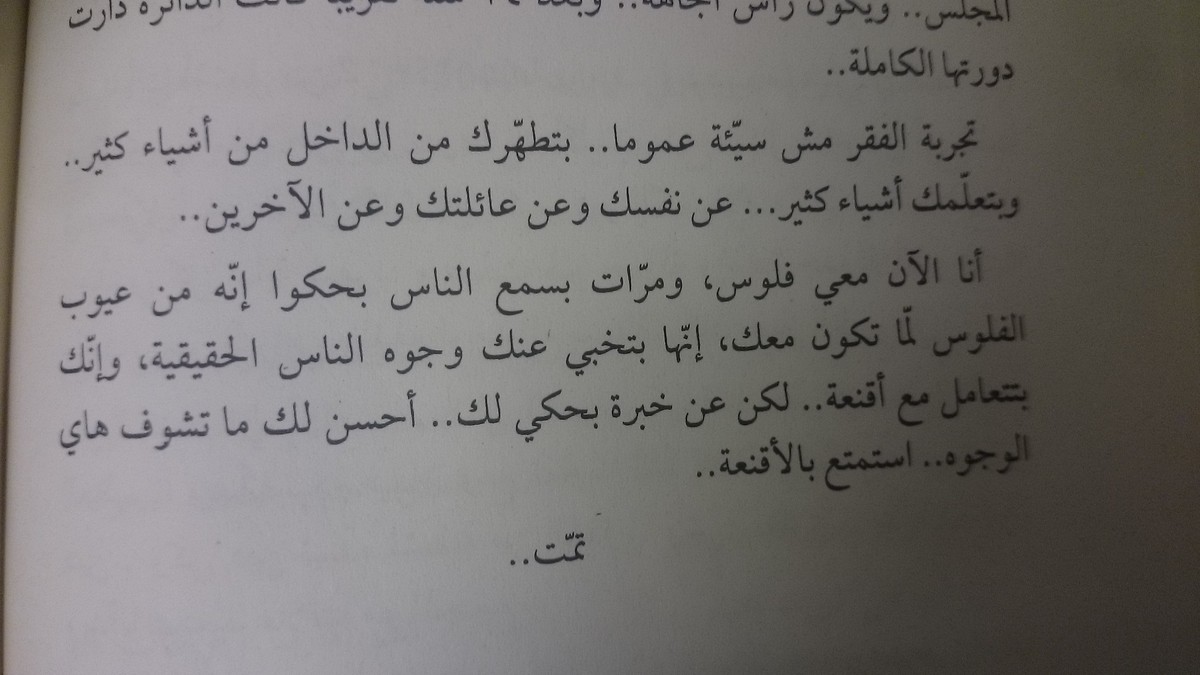 المجلس.. ويكون رأس الجاهة.. وبعد سنة تقريبا كانت الدائرة دارت
دورتها الكاملة..
تجربة الفقر مش سيّئة عموما.. بتطهّرك من الداخل من أشياء كثير..
وبتعلّمك أشياء كثير... عن نفسك وعن عائلتك وعن الآخرين..
أنا الآن معي فلوس، ومرّات بسمع الناس بحكوا إنّه من عيوب
الفلوس لمّا تكون معك، إنّها بتخبي عنك وجوه الناس الحقيقية، وإنّك
بتتعامل مع أقنعة.. لكن عن خبرة بحكي لك.. أحسن لك ما تشوف هاي
الوجوه.. استمتع بالأقنعة..
تمّت..